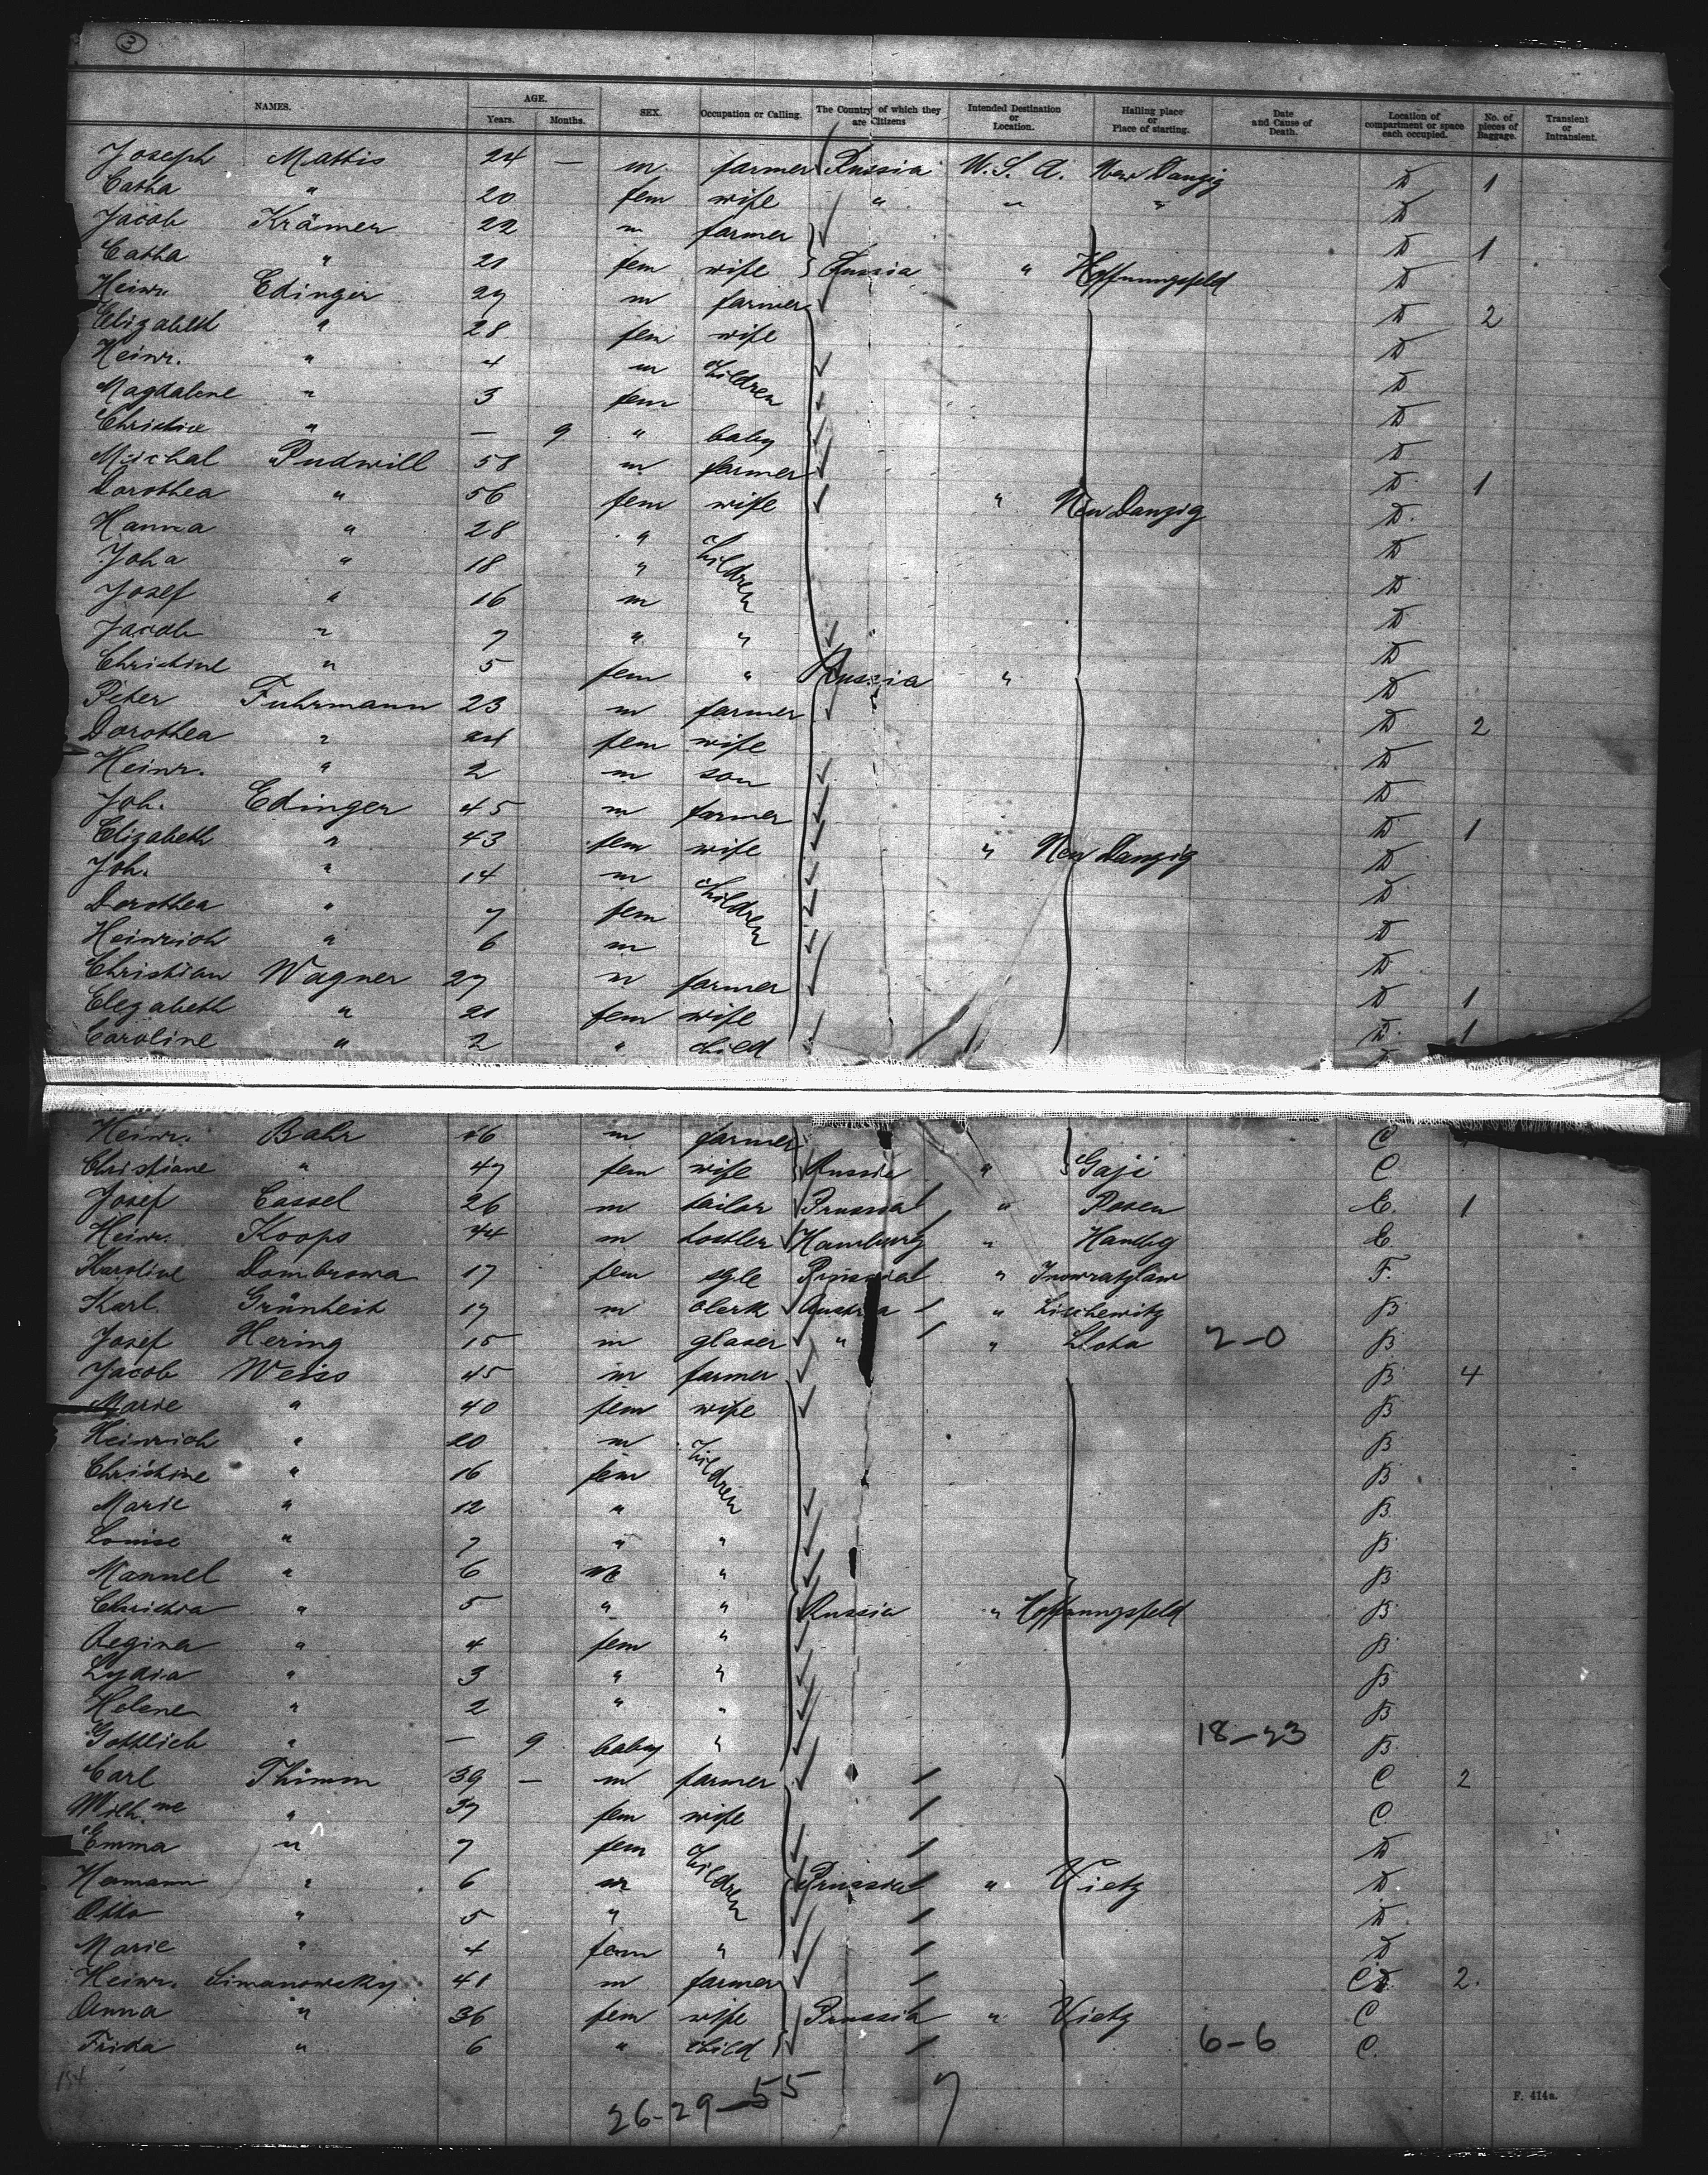 3
NAMES. AGE. Years. Months. SEX. Occupation or Calling. The Country of which they are Citizens Intended Destination or Location. Halling place or Place of starting. Date and Cause of Death. Location of compartment or space each occupied. No. of pieces of Baggage. Transient or Intransient.
Joseph Mattis 24 — m. farmer Russia U.S.A. New Danzig D 1
Catha " 20 fem wife " " " D
Jacob Krämer 22 m farmer D 1
Catha " 21 fem wife Russia " Hoffnungsfeld D
Heinr. Edinger 29 m farmer D 2
Elizabeth " 28 fem wife D
Heinr. " 4 m Children D
Magdalene " 3 fem D
Christine " — 9 " baby D
Michal Pudwill 58 m farmer D 1
Dorothea " 56 fem wife " New Danzig D.
Hanna " 28 " Children D
Joh a " 18 " D
Josef " 16 m D
Jacob " 7 " " D
Christine " 5 fem " Russia " D
Peter Fuhrmann 23 m farmer D 2
Dorothea " 24 fem wife D
Heinr. " 2 m son D
Joh. Edinger 45 m farmer D 1
Elizabeth " 43 fem wife " New Danzig D
Joh. " 14 m Children D
Dorothea " 7 fem D
Heinrich " 6 m D
Christian Wagner 27 m farmer D 1
Elezabeth " 21 fem wife D 1
Caroline " 2 " child
Heinr. Bahr m farmer C
Christiane " 47 fem wife Russia " Gaji C
Josef Cassel 26 m tailor Prussia " Posen E. 1
Heinr. Koops 44 m hostler Hamburg " Hambg E
Karoline Dombrowa 17 fem sgle Prussia " Inowratzlaw F.
Karl Grünheit 17 m clerk Austria " Lischewitz B
Josef Hering 15 m glaser " " 2-0 B
Jacob Weiss 45 m farmer B 4
Marie " 40 fem wife B
Heinrich " 20 m Children B
Christine " 16 fem B
Marie " 12 " B
Louise " 7 " " B
Manuel " 6 m " B
Christia " 5 " " Russia " Hoffnungsfeld B
Regina " 4 fem " B
Lydia " 3 " " B
Helene " 2 " " B
Gottlieb " — 9 baby " 18-23 B
Carl Thimm 39 — m farmer C 2
Wilh.ne " 37 fem wife C
Emma " 7 fem Children D
Hermann " 6 m Prussia " Vietz D
Otto " 5 " D
Marie " 4 fem " D
Heinr. Simanowsky 41 m farmer 2.
Anna " 36 fem wife Prussia " Vietz C
Frida " 6 " child 6-6 C
154
26-29-55 7
F. 414a.